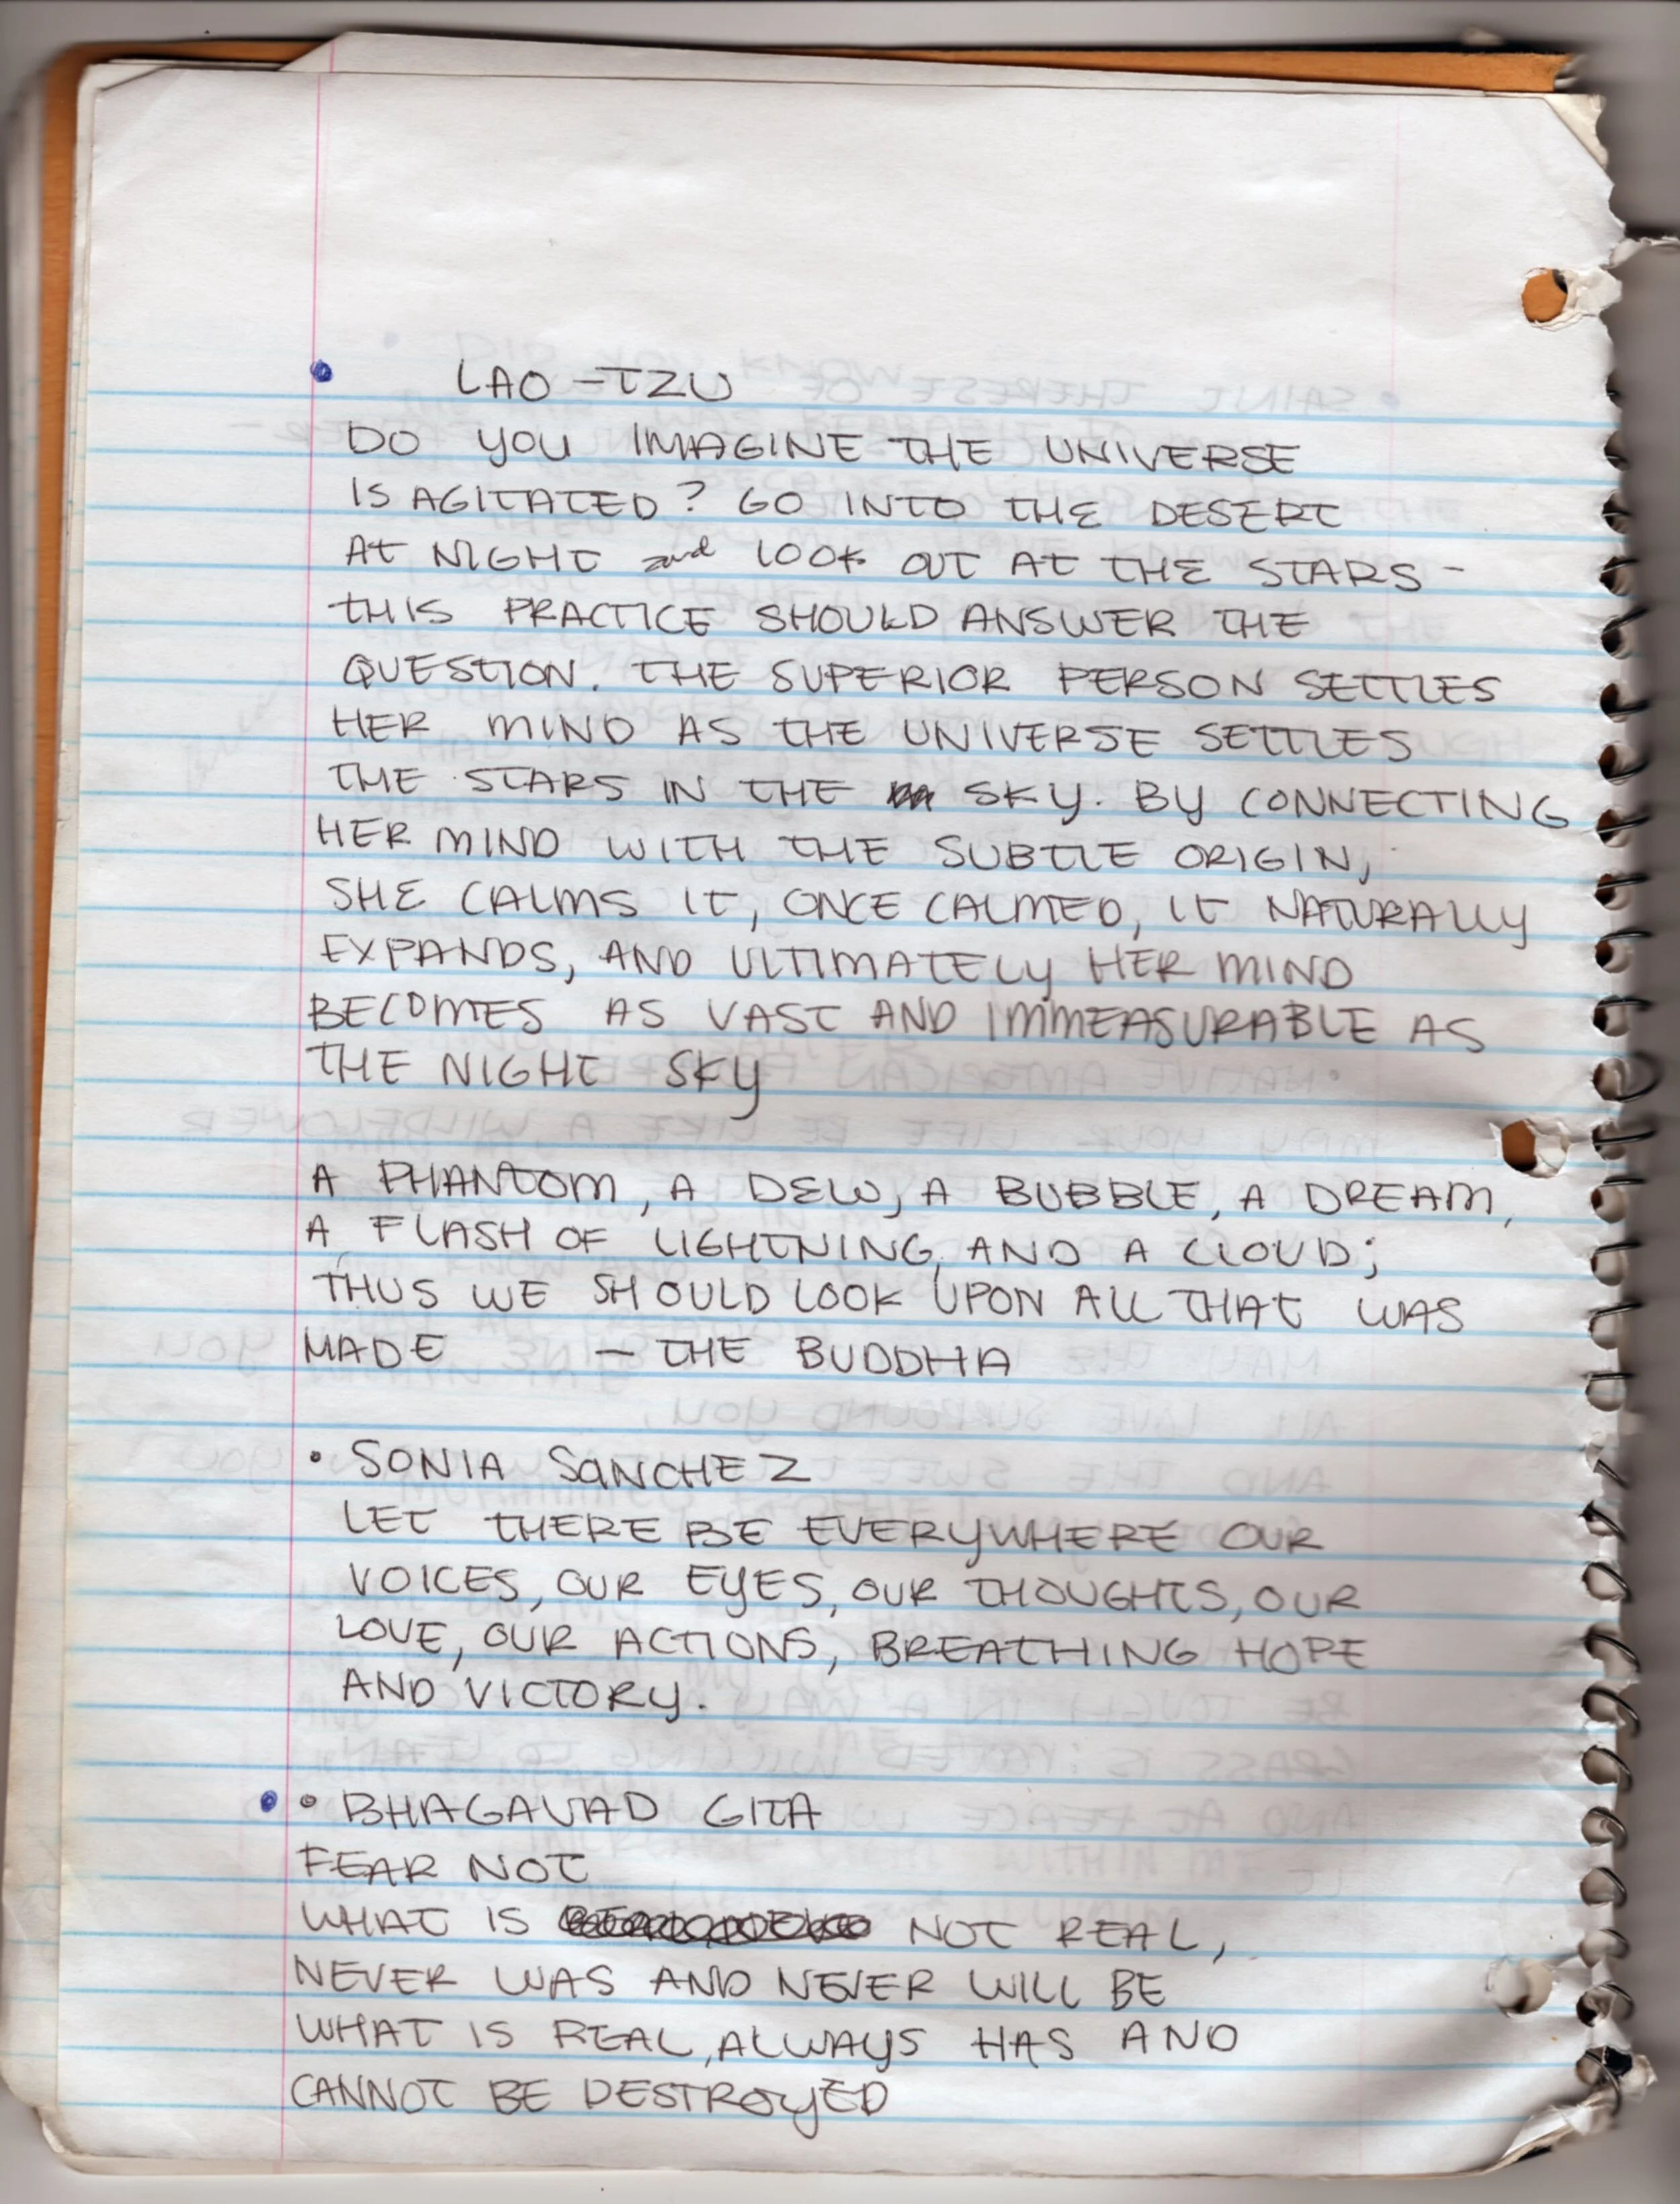 • LAO-TZU
DO YOU IMAGINE THE UNIVERSE
IS AGITATED? GO INTO THE DESERT
AT NIGHT and LOOK OUT AT THE STARS -
THIS PRACTICE SHOULD ANSWER THE
QUESTION. THE SUPERIOR PERSON SETTLES
HER MIND AS THE UNIVERSE SETTLES
THE STARS IN THE SKY. BY CONNECTING
HER MIND WITH THE SUBTLE ORIGIN,
SHE CALMS IT, ONCE CALMED, IT NATURALLY
EXPANDS, AND ULTIMATELY HER MIND
BECOMES AS VAST AND IMMEASURABLE AS
THE NIGHT SKY
A PHANTOM, A DEW, A BUBBLE, A DREAM,
A FLASH OF LIGHTNING, AND A CLOUD;
THUS WE SHOULD LOOK UPON ALL THAT WAS
MADE - THE BUDDHA
• SONIA SANCHEZ
LET THERE BE EVERYWHERE OUR
VOICES, OUR EYES, OUR THOUGHTS, OUR
LOVE, OUR ACTIONS, BREATHING HOPE
AND VICTORY.
• • BHAGAVAD GITA
FEAR NOT
WHAT IS NOT REAL,
NEVER WAS AND NEVER WILL BE
WHAT IS REAL, ALWAYS HAS AND
CANNOT BE DESTROYED